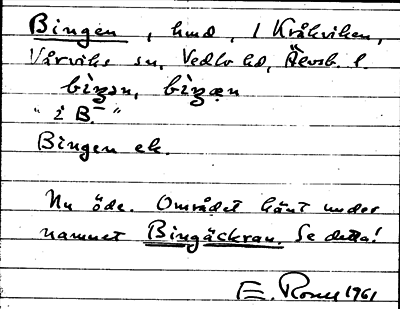 Bingen, hmd, i Kråkviken,
Vårviks sn, Vedbo hd, Älvsb. l.
bìŋən, bìŋæn
"i B."
Bingen ek.
Nu öde. Området känt under
namnet Bingäckran. Se detta!
E. 1961